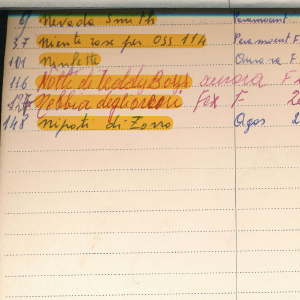 Nevada Smith Paramount
37 Niente rose per OSS 114 Paramount F.
101 Ninfette F.
116 Notti di Teddy Boys aurora F.
Nebbia degli orrori Fox F 2
148 Nipoti di Zorro Agos 2